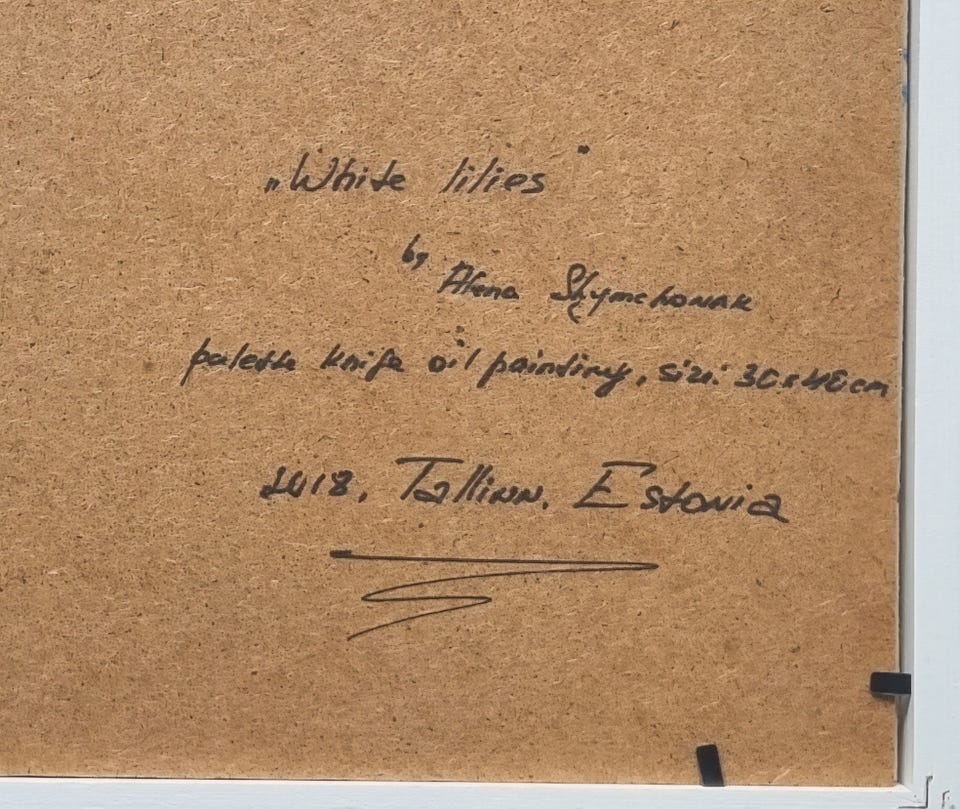 „White lilies”
by Alena Shymchonak
palette knife oil painting, size: 30x40cm
2018, Tallinn, Estonia